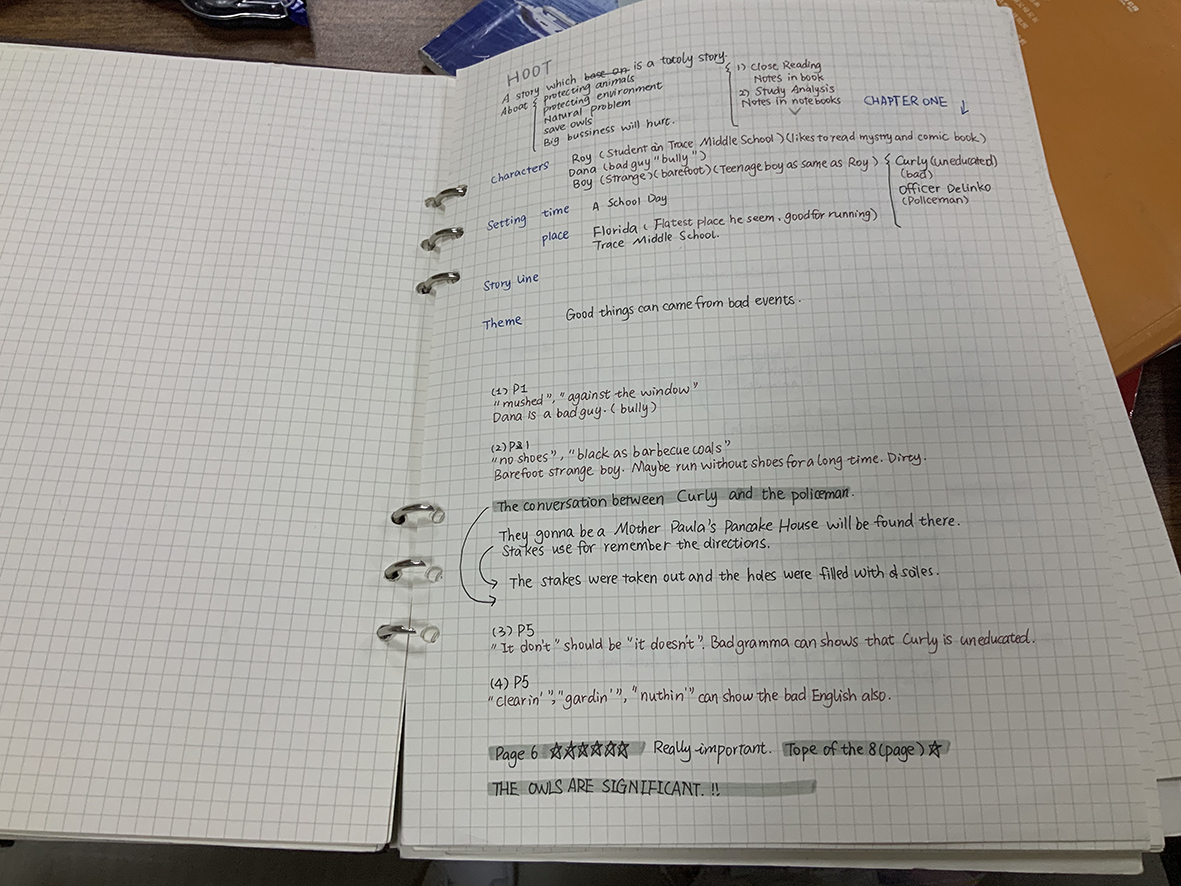 HOOT
A story which base on is a totoly story.
About { protecting animals
protecting environment
Natural problem
save owls
Big bussiness will hurt.
{ 1) Close Reading
Notes in book
2) Study Analysis
Notes in notebooks
CHAPTER ONE ↓
Characters
Roy (Student in Trace Middle School) (likes to read mystry and comic book.)
Dana (bad guy "bully")
Boy (Strange) (barefoot) (Teenage boy as same as Roy)
{ Curly (uneducated)
(bad)
Officer Delinko
(Policeman)
Setting time A School Day
place Florida (Flatest place he seem, good for running)
Trace Middle School.
Story line
Theme Good things can came from bad events.
(1) P1
"mushed", "against the window"
Dana is a bad guy. (bully)
(2) P1
"no shoes", "black as barbecue coals"
Barefoot strange boy. Maybe run without shoes for a long time. Dirty.
The conversation between Curly and the policeman.
They gonna be a Mother Paula's Pancake House will be found there.
Stakes use for remember the directions.
The stakes were taken out and the holes were filled with soles.
(3) P5
"It don't" should be "it doesn't". Bad gramma can shows that Curly is uneducated.
(4) P5
"clearin'", "gardin'", "nuthin'" can show the bad English also.
Page 6 ☆☆☆☆☆☆ Really important. Tope of the 8 (page) ☆
THE OWLS ARE SIGNIFICANT. !!